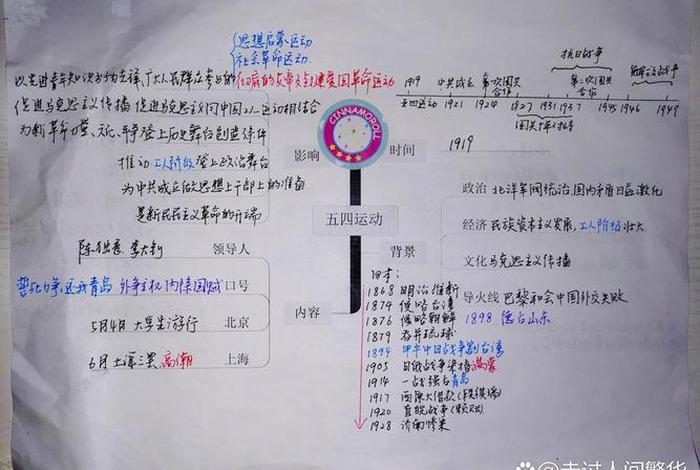 思想启蒙运动
社会革命运动
以先进青年知识分子为先锋、广大人民群众参与的彻底的反帝反封建爱国革命运动
促进马克思主义传播 促进马克思主义同中国工人运动相结合
为新革命力量、文化、斗争登上历史舞台创造条件
推动工人阶级登上政治舞台
为中共成立做思想上干部上的准备
是新民主主义革命的开端
影响
CINNAMOROLL
时间
1919
抗日战争
1919 中共成立 第一次国共合作 第二次国共合作
五四运动 1921 1924 1927 1931 1937 1945 1946 1949
国共十年对峙
五四运动
背景
政治 北洋军阀统治,国内矛盾日益激化
经济 民族资本主义发展,工人阶级壮大
文化 马克思主义传播
导火线 巴黎和会中国外交失败
1898 德占山东
陈独秀 李大钊 领导人
誓死力争,还我青岛 外争主权 内除国贼 口号
5月4日 大学生游行 北京
6月 上海
高潮
内容
日本:
1868 明治维新
1874 侵略台湾
1876 侵略朝鲜
1879 吞并琉球
1894 甲午中日战争割台湾
1905 日俄战争
1914 一战强占青岛
1917 西原大借款(段祺瑞)
1920 直皖战争
1928 济南惨案
走过人间繁华